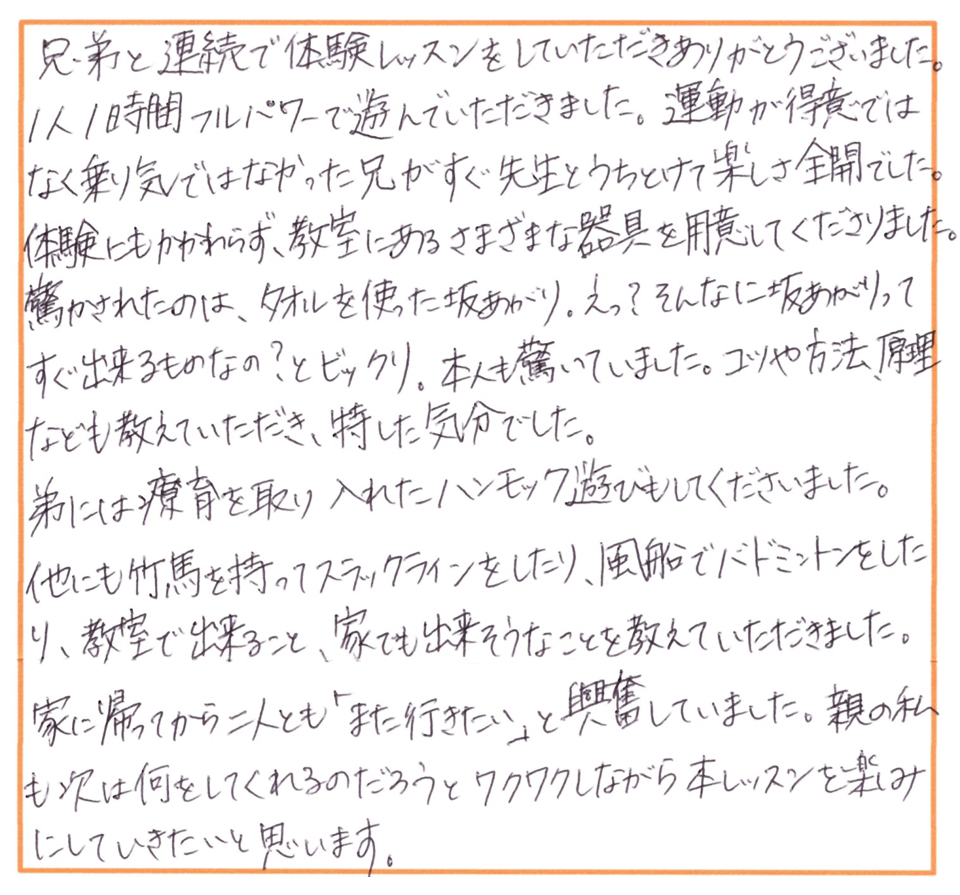 兄・弟と連続で体験レッスンをしていただきありがとうございました。
1人1時間フルパワーで遊んでいただきました。運動が得意では
なく乗り気ではなかった兄がすぐ先生とうちとけて楽しさ全開でした。
体験にもかかわらず、教室にあるさまざまな器具を用意してくださりました。
驚かされたのは、タオルを使った坂あがり。えっ?そんなに坂あがりって
すぐ出来るものなの?とビックリ。本人も驚いていました。コツや方法、原理
なども教えていただき、特した気分でした。
弟には療育を取り入れたハンモック遊びもしてくださいました。
他にも竹馬を持ってスラックラインをしたり、風船でバドミントンをした
り、教室で出来ること、家でも出来そうなことを教えていただきました。
家に帰ってから二人とも「また行きたい」と興奮していました。親の私
も次は何をしてくれるのだろうとワクワクしながら本レッスンを楽しみ
にしていきたいと思います。